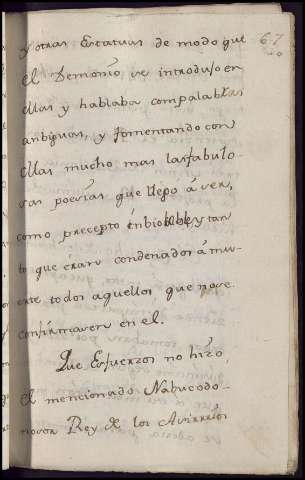 67
y otras Estatuas de modo que
el Demonio, se introdujo en
ellas y hablaba con palabras
anbiguas, y fomentando con
ellas mucho mas las fabulo-
sas poesias que llego á ser,
como precepto inbiolable, y tan
to que eran condenados á mu-
erte todos aquellos que nose
confirmaven en el.
Que Esfuerzos no hizo,
el mencionado Nabucodo-
nosor Rey de los Assirios